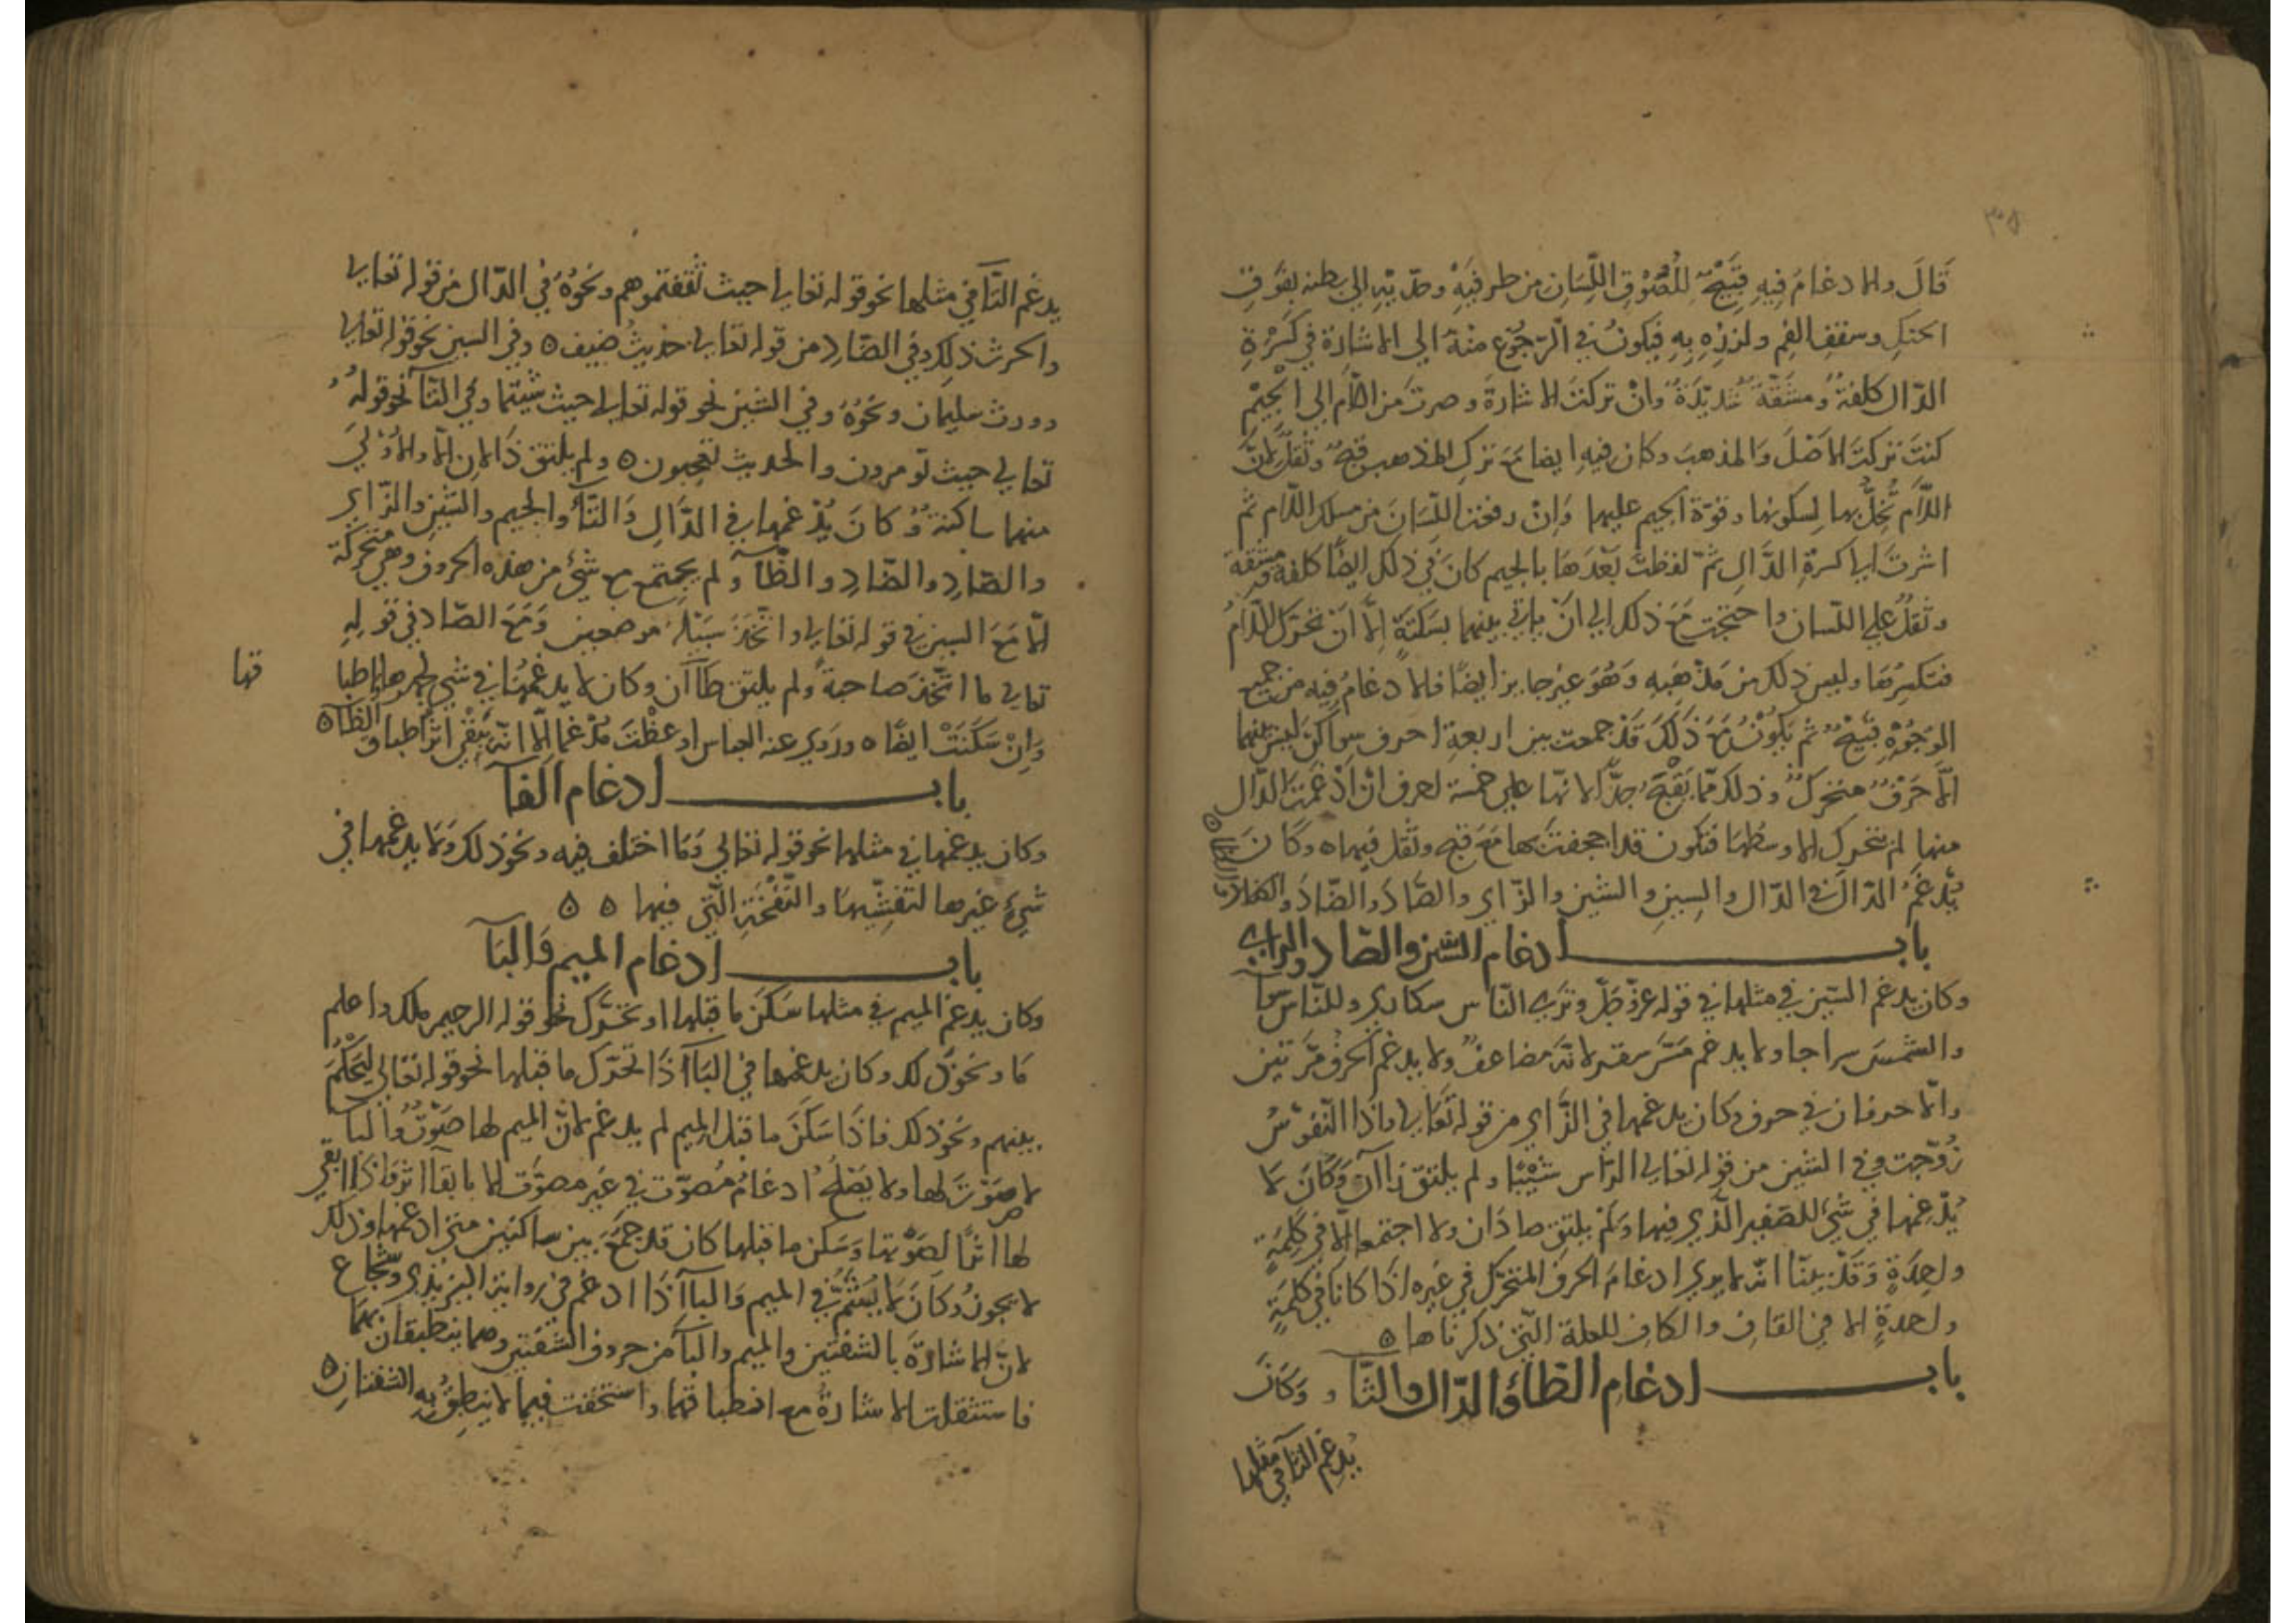 ٣٠٥
قَالَ والادغامَ فِيهِ قَبِيْحٌ للُصُوْقِ اللِّسَانِ من طرفَيْهِ وحدّيْهِ الى بطنه بفَوقِ
الحنكِ وسقفِ الفمِ ولزِزِهِ بِهِ فيكونُ في الرّجُوْعِ منْهُ الى الاشارَة في كَسْرَةِ
الدّال كلفةٌ ومشقّةٌ شديْدَةٌ وانْ تركتَ الاشارةَ وصرتَ من اللّام الى الجِيْمِ
كنتَ تركتَ الاصْلَ والمذهبَ وكان فيهِ ايضا معَ تركِ المذهب قبحٌ وثقلٌ لانّ
اللّام تُخِلُّ بها لسكونها وقوّة الجيم عليها وَاِنْ رفعتَ اللِّسَانَ من مسلك اللّام ثم
اشرتَ الى كسرةِ الدَّالِ ثمّ لفظتَ بَعْدَهَا بالجيم كانَ في ذلك ايضًا كلفة ومشقة
وثقلٌ على اللّسان واحتجت مَعَ ذلك الى انْ ياتي بينهما بسَكتَةٍ اِلّا انْ تحرّك اللّامُ
فتكسِرُهَا وليس ذلك من مَذْهَبِهِ وَهُوَ غير جايز ايضًا فالادغامُ فيه من جميع
الوُجُوْهِ قَبيْحٌ ثم يَكُوْنُ مَعَ ذَلكَ قَدْ جمعت بين اربعةِ احرف سواكن ليس بينها
الّا حَرْفٌ متحركٌ وذلك ممّا يَقْبُحُ جدًّا لانّها على خمسة احرف انْ ادْغَمتَ الدّال
منها لم يتحرك الا وسطها فتكون قد اجحفت بها مَعَ قبح وثقل فيها ٥ وكَانَ
يُدْغمُ الذّالَ في الدّال والسين والشين والزّاي والصَّادِ والضّادِ والظاء
والثاء ٥
بابــــــــ ادغام السّين والصّاد والزاي
وكان يدغم السّين في مثلها في قوله عزّ وجلّ وترَى النّاس سكارى وللنّاس سوَآ
والشمسَ سراجا ولا يدغم مَسّ سقر لانّهُ مضاعفٌ ولا يدغم الحرفُ مرّتين
وانّما حرفان في حرف وكان يدغمها في الزّاي من قوله تعَالى واذا النّفوْسُ
زُوّجت وفي الشين من قوله تعالى الرّاس شيْبًا ولم يلتق زاآن وَكَانَ لا
يُدْغِمُها في شئ للصّفير الّذي فيها وَلمْ يلتق صادَان ولا اجتمعا الّا في كَلِمَةٍ
واحدَةٍ وَقَدْ بيّنّا انّه لا يرى ادغامَ الحرف المتحَرّك في غيره اذَا كانَا في كلمَةٍ
واحدةٍ الا في القاف والكاف للعلة الّتي ذكرناها ٥
بابــــــــ ادغام الطّآءِ والدّال والتّآءِ وَكَانَ
يُدغم التّآ في مثلها
يدغم التّآ في مثلها نحو قوله تعالى حيث ثقفتموهم ونحْوُهُ في الذّال من قوله تعالى
والحرث ذلك وفي الضّاد من قوله تعالى حديثُ ضيف ٥ وفي السين نحو قوله تعالى
وورث سليمان ونحْوُهُ وفي الشين نحو قوله تعالى حيث شيتما وفي التّآ نحو قولهُ
تعالى حيث تومرون والحديث تعجبون ٥ ولم يلتق ذَالان الّا والاوْلىَ
منهما ساكنة وكانَ يُدْغمها في الدَّالِ وَالتّآءِ والجيم والسّين والزّاي
والصّادِ والضّادِ والظّآ ولم يجتمع مع شئ من هذه الحروف وهي متحرّكَة
الّا مَعَ السين في قوله تعالى واتّخَذَ سَبيْلَهُ موضعين وَمَعَ الصّاد في قولِهِ
تعالى ما اتّخَذَ صاحبةً ولم يلتق ظاآن وكان لا يدغمُهَا في شئ غيرها لاطبا
قها
وَاِنْ سَكَنَتْ ايضًا ٥ وروي عنه العباس اوعظْتَ مُدْغما الّا انّه يَبْقْى اثرُ اطباق الظّآ ٥
بابــــــــ ادغام الفآ
وكان يدغمها في مثلها نحو قوله تعالى وَمَا اختلف فيه ونحو ذلك ولا يدغمها في
شئ غيرها لتفشّيهَا والنّفخَةِ الّتي فيها ٥ ٥
بابــــــــ ادغام الميم وَالبَآ
وكان يدغم الميم في مثلها سَكنَ ما قبلها او تحَرّك نحو قوله الرحيم ملك واعلم
مَا ونحو ذلك وكان يدغمها في البَآ اذَا تحرّك ما قبلها نحو قوله تعالى ليَحْكُمَ
بينهم ونحو ذلك فاذَا سَكَنَ ما قبل الميم لم يدغم لانّ الميم لها صَوْتٌ والبآ
لا صَوْتَ لها ولا يَصْلحُ ادغامُ مُصوّت في غيْر مصوّت الا بابقآ اثر فاذَا ابقى
لها اثرًا لصَوْتها وسَكن ما قبلها كان قد جمَعَ بين ساكنين متى ادغمها وذلك
لا يجوز وكَانَ لا يُشِمُّ في الميم وَالبآ اذَا ادغم في رواية اليزيدي وشجاع
لانّ الاشارَةَ بالشفتين والميم والبآ من حروف الشفتين وهما ينطبقان بهمَا
فاستثقلت الاشارةُ مع انطباقهما واستخفت فيما لا ينطبِقُ بِهِ الشفتانِ ٥